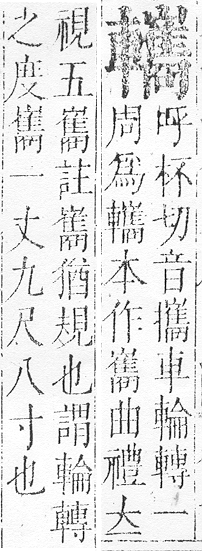 𨏳
呼杯切音攜車輪轉一
周爲𨏳本作巂曲禮立
視五巂註巂猶規也謂輪轉
之度巂一丈九尺八寸也